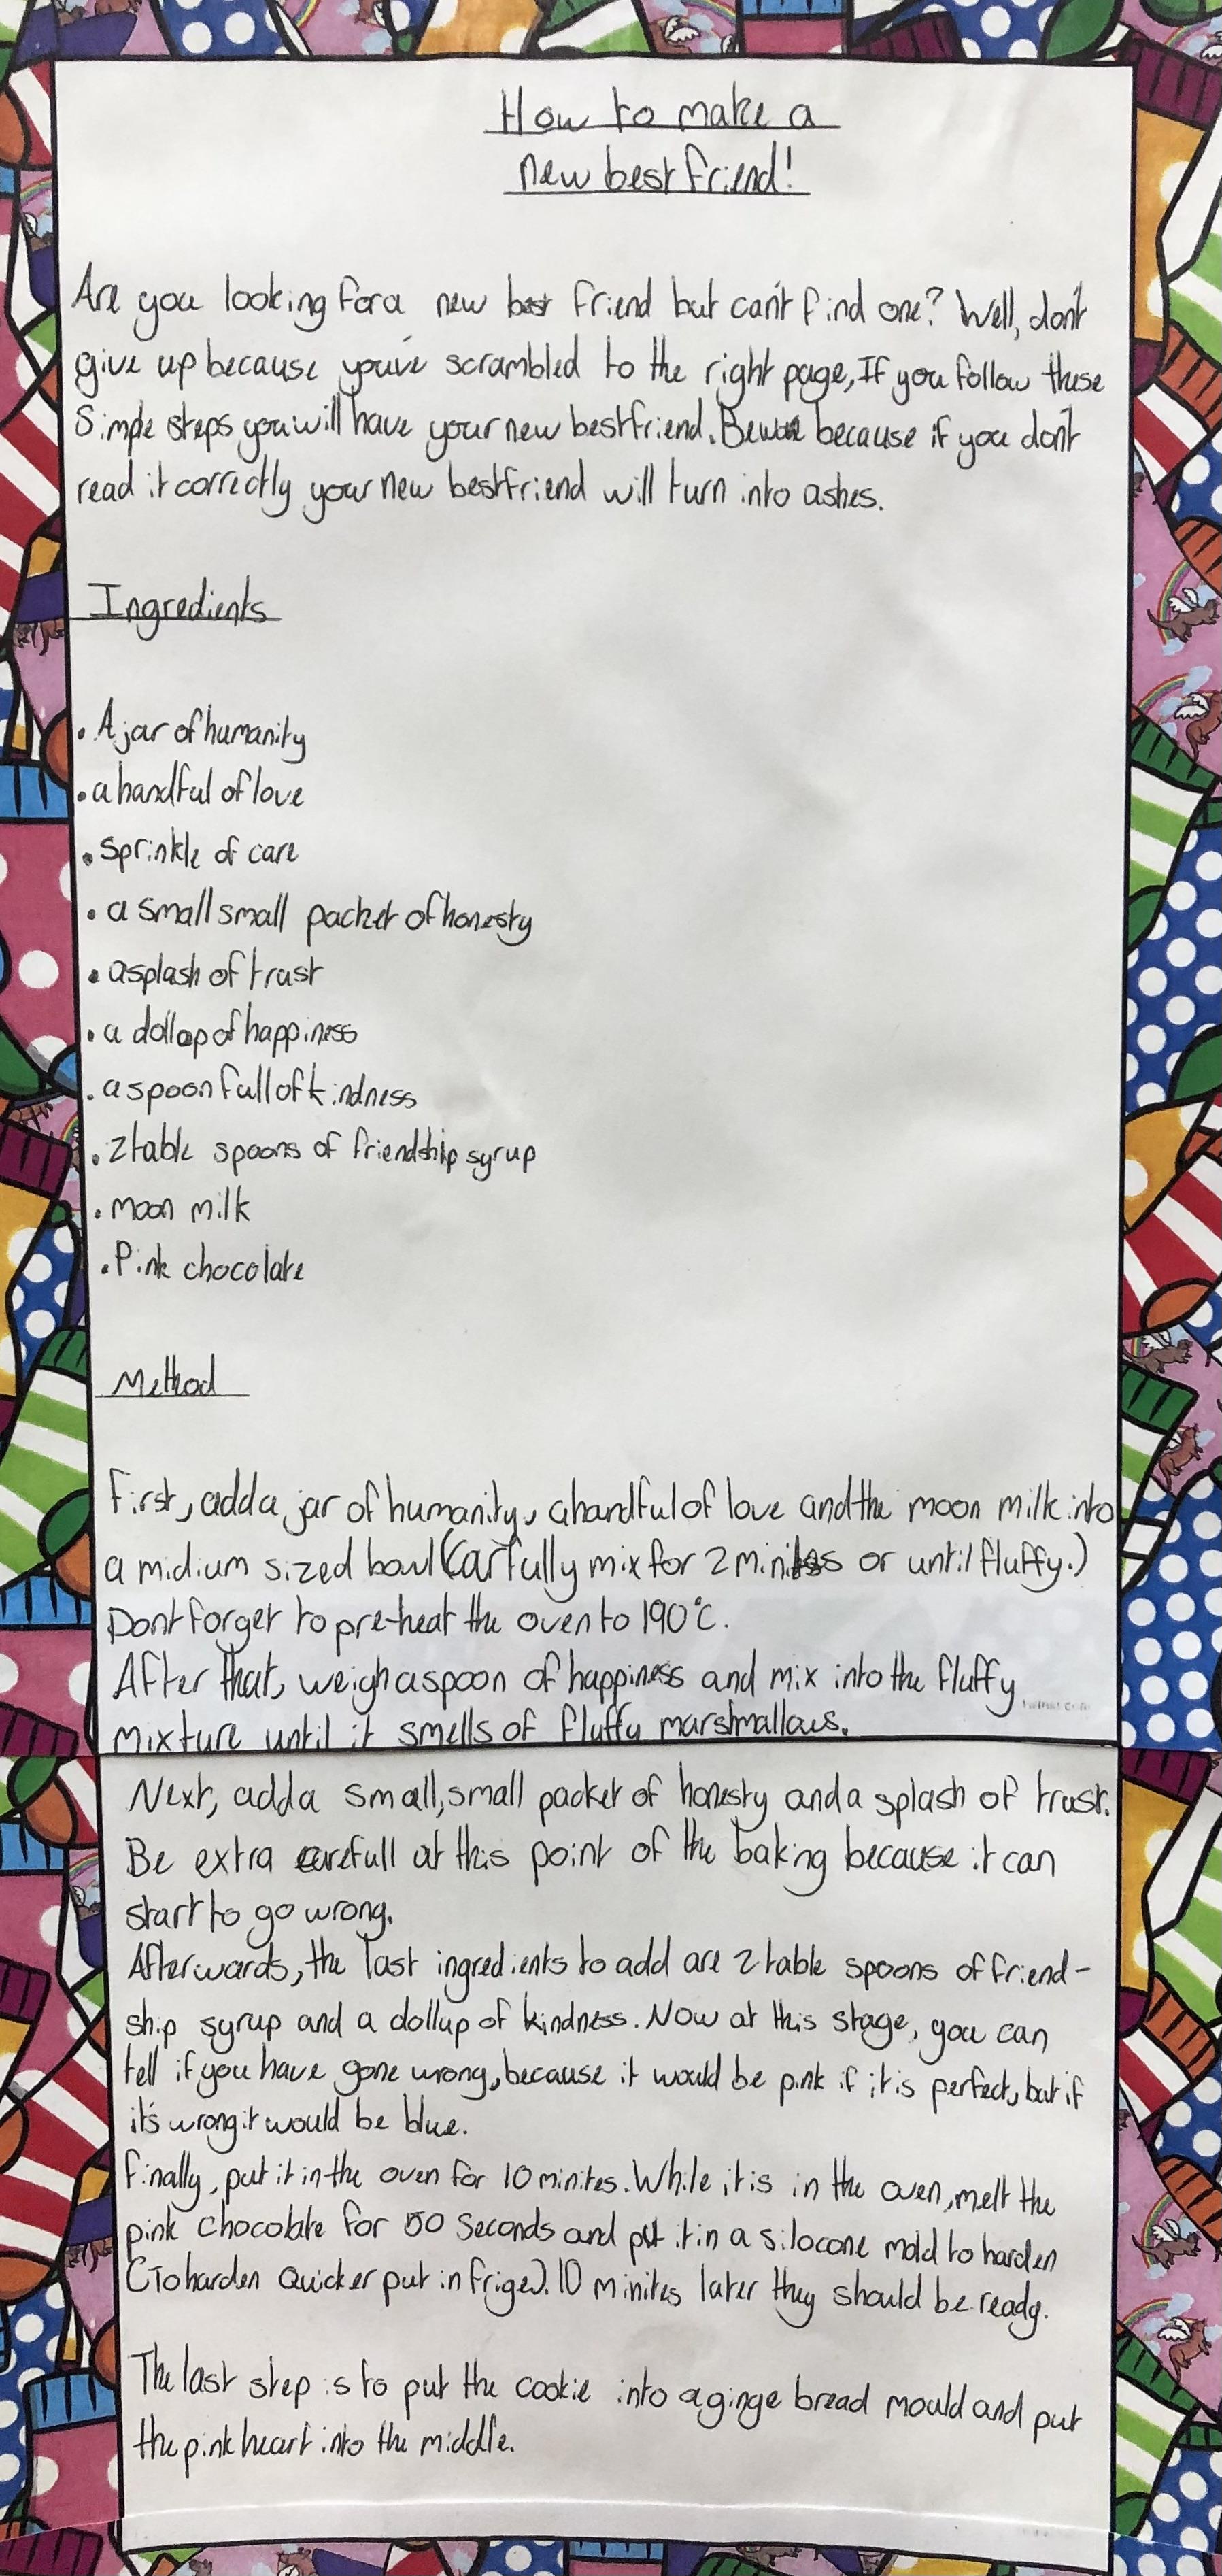 How to make a
new best friend!
Are you looking for a new best friend but can't find one? Well, don't
give up because you've scrambled to the right page, If you follow these
Simple steps you will have your new bestfriend. Beware because if you don't
read it correctly your new bestfriend will turn into ashes.
Ingredients
• A jar of humanity
• a handful of love
• sprinkle of care
• a small small packet of honesty
• a splash of trust
• a dollop of happiness
• a spoon full of kindness
• 2 table spoons of friendship syrup
• moon milk
• Pink chocolate
Method
First, add a jar of humanity, a handful of love and the moon milk into
a midium sized bowl (Carfully mix for 2 minites or until fluffy.)
Dont forget to pre-heat the oven to 190°C.
After that, weigh a spoon of happiness and mix into the fluffy
mixture until it smells of fluffy marshmallows.
Next, add a small, small packet of honesty and a splash of trust.
Be extra carefull at this point of the baking because it can
start to go wrong.
Afterwards, the last ingredients to add are 2 table spoons of friend-
ship syrup and a dollup of kindness. Now at this stage, you can
tell if you have gone wrong, because it would be pink if it is perfect, but if
it's wrong it would be blue.
Finally, put it in the oven for 10 minites. While it is in the oven, melt the
pink chocolate for 50 seconds and put it in a silocone mold to harden
(To harden Quicker put in frige). 10 minites later they should be ready.
The last step is to put the cookie into a ginge bread mould and put
the pink heart into the middle.